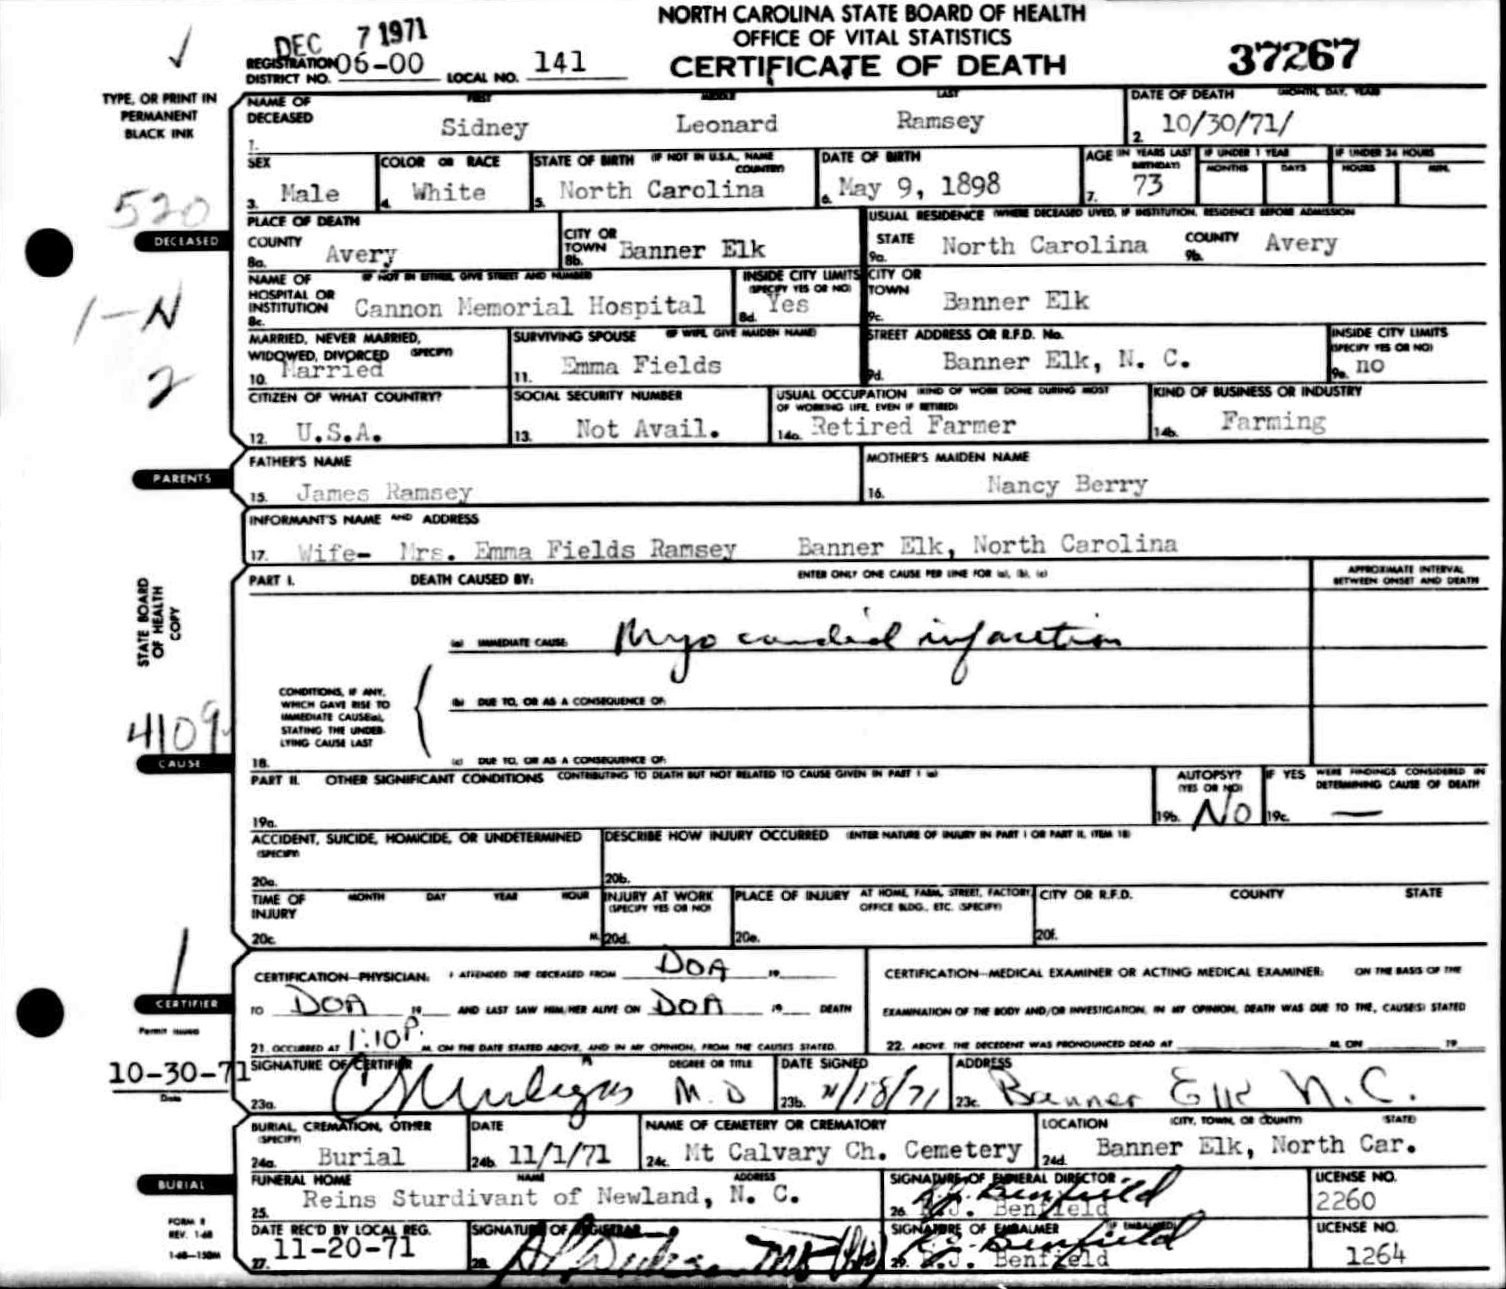 NORTH CAROLINA STATE BOARD OF HEALTH
OFFICE OF VITAL STATISTICS
CERTIFICATE OF DEATH
DEC 7 1971
REGISTRATION DISTRICT NO. 06-00 LOCAL NO. 141
37267
TYPE, OR PRINT IN
PERMANENT
BLACK INK
NAME OF DECEASED FIRST MIDDLE LAST
1. Sidney Leonard Ramsey
DATE OF DEATH (MONTH, DAY, YEAR)
2. 10/30/71/
SEX
3. Male
COLOR OR RACE
4. White
STATE OF BIRTH (IF NOT IN U.S.A., NAME COUNTRY)
5. North Carolina
DATE OF BIRTH
6. May 9, 1898
AGE (IN YEARS LAST BIRTHDAY)
7. 73
IF UNDER 1 YEAR
MONTHS DAYS
IF UNDER 24 HOURS
HOURS MIN.
520
DECEASED
PLACE OF DEATH
COUNTY
8a. Avery
CITY OR TOWN
8b. Banner Elk
USUAL RESIDENCE (WHERE DECEASED LIVED, IF INSTITUTION, RESIDENCE BEFORE ADMISSION
STATE
9a. North Carolina
COUNTY
9b. Avery
1-N
NAME OF HOSPITAL OR INSTITUTION (IF NOT IN EITHER, GIVE STREET AND NUMBER)
8c. Cannon Memorial Hospital
INSIDE CITY LIMITS (SPECIFY YES OR NO)
8d. Yes
CITY OR TOWN
9c. Banner Elk
2
MARRIED, NEVER MARRIED, WIDOWED, DIVORCED (SPECIFY)
10. Married
SURVIVING SPOUSE (IF WIFE, GIVE MAIDEN NAME)
11. Emma Fields
STREET ADDRESS OR R.F.D. No.
9d. Banner Elk, N. C.
INSIDE CITY LIMITS (SPECIFY YES OR NO)
9e. no
CITIZEN OF WHAT COUNTRY?
12. U.S.A.
SOCIAL SECURITY NUMBER
13. Not Avail.
USUAL OCCUPATION (KIND OF WORK DONE DURING MOST OF WORKING LIFE, EVEN IF RETIRED)
14a. Retired Farmer
KIND OF BUSINESS OR INDUSTRY
14b. Farming
PARENTS
FATHER'S NAME
15. James Ramsey
MOTHER'S MAIDEN NAME
16. Nancy Berry
INFORMANT'S NAME AND ADDRESS
17. Wife- Mrs. Emma Fields Ramsey Banner Elk, North Carolina
STATE BOARD
OF HEALTH
COPY
PART I. DEATH CAUSED BY: ENTER ONLY ONE CAUSE PER LINE FOR (a), (b), (c)
APPROXIMATE INTERVAL
BETWEEN ONSET AND DEATH
(a) IMMEDIATE CAUSE: Myocardial infarction
CONDITIONS, IF ANY,
WHICH GAVE RISE TO
IMMEDIATE CAUSE(a),
STATING THE UNDER-
LYING CAUSE LAST
(b) DUE TO, OR AS A CONSEQUENCE OF:
18. (c) DUE TO, OR AS A CONSEQUENCE OF:
4109
CAUSE
PART II. OTHER SIGNIFICANT CONDITIONS CONTRIBUTING TO DEATH BUT NOT RELATED TO CAUSE GIVEN IN PART I (a)
19a.
AUTOPSY? (YES OR NO)
19b. NO
IF YES WERE FINDINGS CONSIDERED IN DETERMINING CAUSE OF DEATH
19c. —
ACCIDENT, SUICIDE, HOMICIDE, OR UNDETERMINED (SPECIFY)
20a.
DESCRIBE HOW INJURY OCCURRED (ENTER NATURE OF INJURY IN PART I OR PART II, ITEM 18)
20b.
TIME OF INJURY MONTH DAY YEAR HOUR
20c. M.
INJURY AT WORK (SPECIFY YES OR NO)
20d.
PLACE OF INJURY AT HOME, FARM, STREET, FACTORY, OFFICE BLDG., ETC. (SPECIFY)
20e.
CITY OR R.F.D. COUNTY STATE
20f.
CERTIFIER
CERTIFICATION—PHYSICIAN: I ATTENDED THE DECEASED FROM DOA 19
TO DOA 19 AND LAST SAW HIM/HER ALIVE ON DOA 19 DEATH
21. OCCURRED AT 1:10 P. M. ON THE DATE STATED ABOVE, AND IN MY OPINION, FROM THE CAUSES STATED.
CERTIFICATION—MEDICAL EXAMINER OR ACTING MEDICAL EXAMINER: ON THE BASIS OF THE
EXAMINATION OF THE BODY AND/OR INVESTIGATION, IN MY OPINION, DEATH WAS DUE TO THE, CAUSE(S) STATED
22. ABOVE. THE DECEDENT WAS PRONOUNCED DEAD AT M. ON 19
Permit Issued
10-30-71
Date
SIGNATURE OF CERTIFIER DEGREE OR TITLE
23a. M.D
DATE SIGNED
23b. 11/18/71
ADDRESS
23c. Banner Elk N.C.
BURIAL
BURIAL, CREMATION, OTHER (SPECIFY)
24a. Burial
DATE
24b. 11/1/71
NAME OF CEMETERY OR CREMATORY
24c. Mt Calvary Ch. Cemetery
LOCATION (CITY, TOWN, OR COUNTY) (STATE)
24d. Banner Elk, North Car.
FUNERAL HOME NAME ADDRESS
25. Reins Sturdivant of Newland, N. C.
SIGNATURE OF FUNERAL DIRECTOR
26. R.J. Benfield
LICENSE NO.
2260
FORM 8
REV. 1-68
1-68—150M
DATE REC'D BY LOCAL REG.
27. 11-20-71
SIGNATURE OF REGISTRAR
28.
SIGNATURE OF EMBALMER (IF EMBALMED)
29. R.J. Benfield
LICENSE NO.
1264